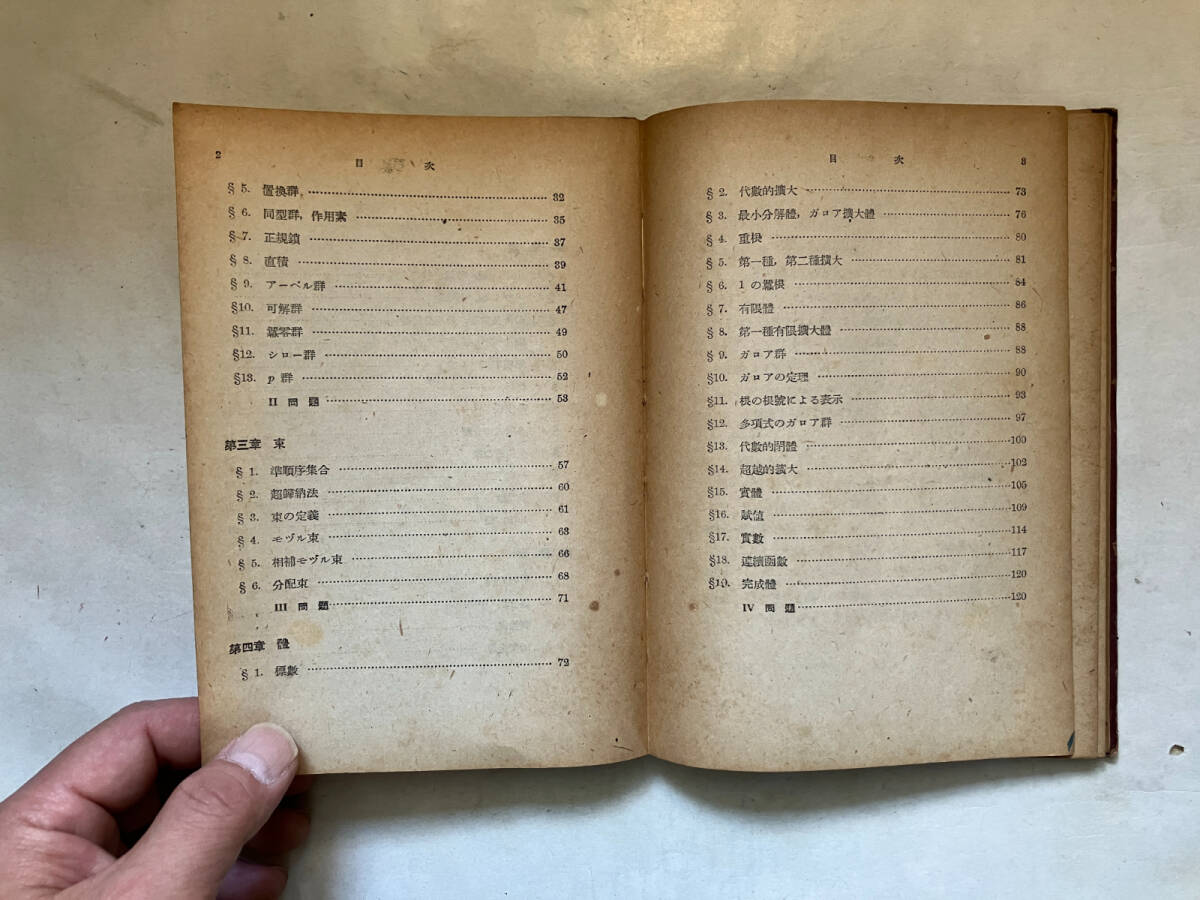 2
目 次
§ 5. 置換群 32
§ 6. 同型群, 作用素 35
§ 7. 正規鎖 37
§ 8. 直積 39
§ 9. アーベル群 41
§10. 可解群 47
§11. 羃零群 49
§12. シロー群 50
§13. p 群 52
II 問題 53
第三章 束
§ 1. 準順序集合 57
§ 2. 超歸納法 60
§ 3. 束の定義 61
§ 4. モヅル束 63
§ 5. 相補モヅル束 66
§ 6. 分配束 68
III 問題 71
第四章 體
§ 1. 標數 72
目 次
3
§ 2. 代數的擴大 73
§ 3. 最小分解體, ガロア擴大體 76
§ 4. 重根 80
§ 5. 第一種, 第二種擴大 81
§ 6. 1 の羃根 84
§ 7. 有限體 86
§ 8. 第一種有限擴大體 88
§ 9. ガロア群 88
§10. ガロアの定理 90
§11. 根の根號による表示 93
§12. 多項式のガロア群 97
§13. 代數的閉體 100
§14. 超越的擴大 102
§15. 實體 105
§16. 賦値 109
§17. 實數 114
§18. 連續函數 117
§19. 完成體 120
IV 問題 120